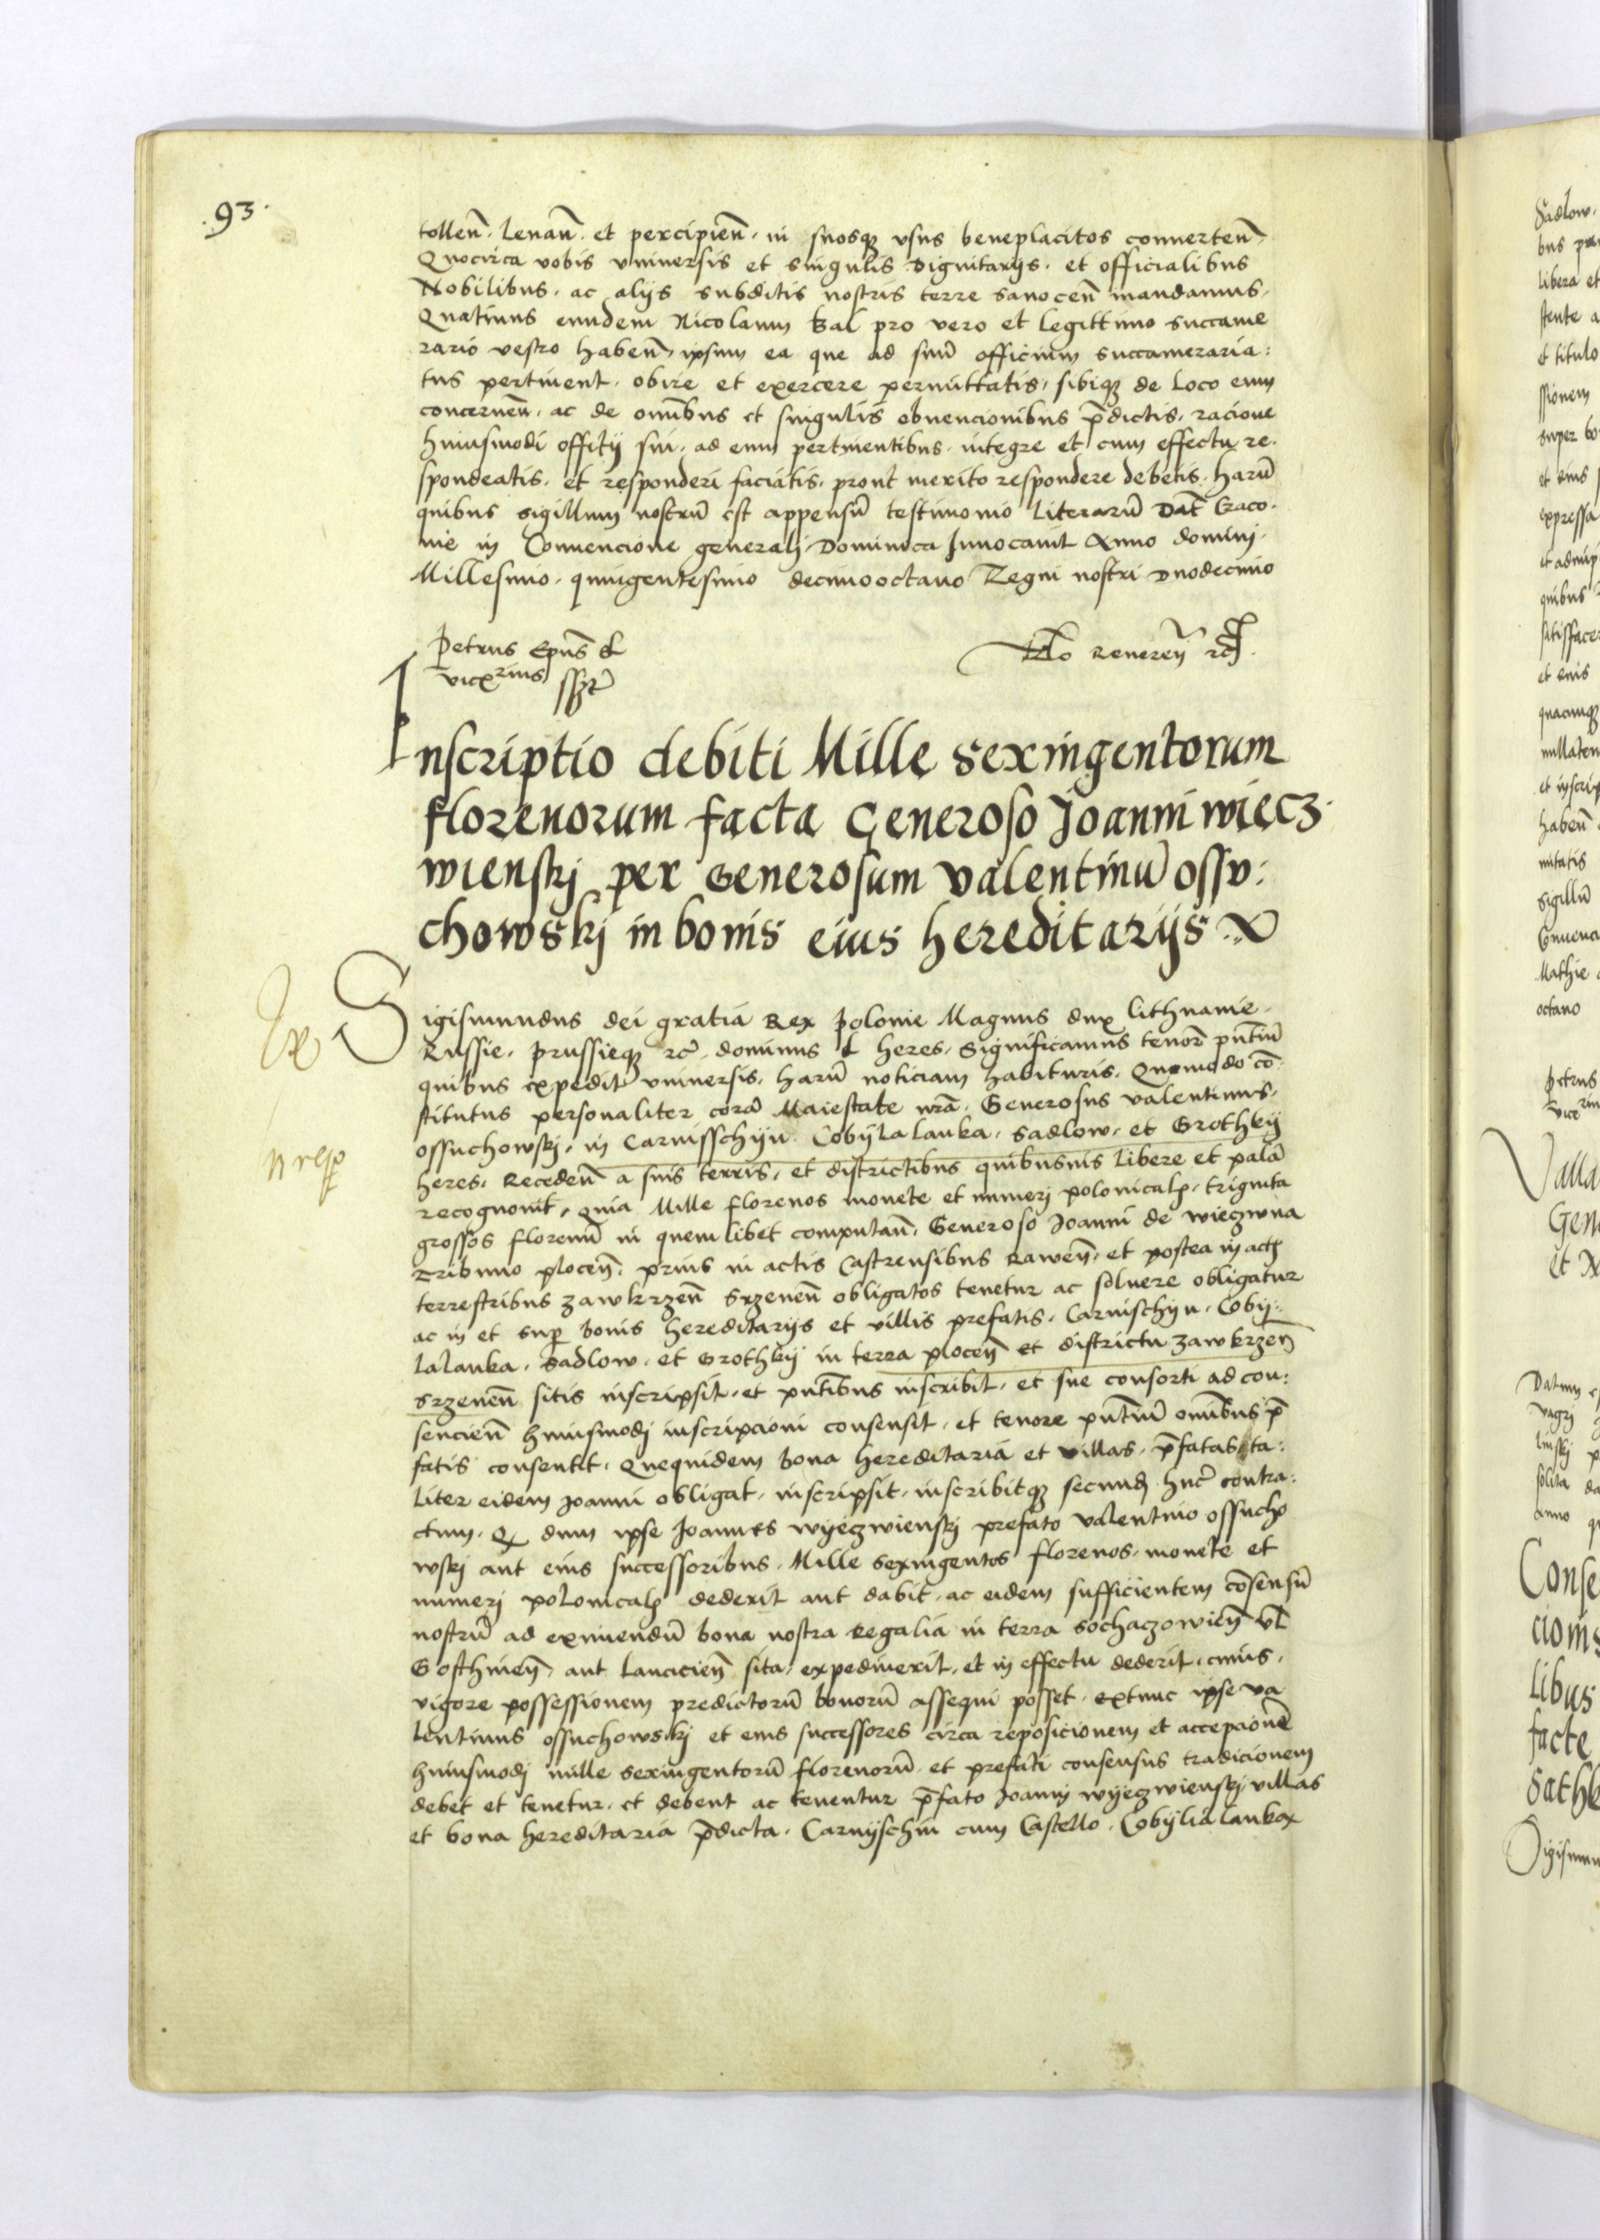 .93.
tolleñ. levañ. et percipieñ. in suosqꝫ usus beneplacitos converteñ.
Quocirca vobis universis et singulis dignitarijs. et officialibus
Nobilibus. ac alijs subditis nostris terre sanoceñ mandamus.
Quatinus eundem Nicolaum Bal pro vero et legittimo succame
rario vestro habeñ ipsum ea que ad suū officium succameraria:
tus pertinent. obire et exercere permittatis, sibiqꝫ de loco eum
concerneñ. ac de omībus et singulis obvencionibus p̄dictis, racione
huiusmodi officij sui. ad eum pertinentibus. integre et cum effectu re.
spondeatis. et responderi faciatis, prout merito respondere debetis. harū
quibus sigillum nostrū est appensū testimonio literarū Dat̄ Craco.
vie in Convencione generali. Dominica Invocavit Anno domini.
Millesimo. quingentesimo decimooctavo Regni nostri duodecimo
Petrus Ep̄us et
vicerius sst̄
Rlo Reveren̄ rc̄
Inscriptio debiti Mille sexingentorum
florenorum facta Generoso Joanni wiecz.
wienskj per Generosum Valentinū ossu:
chowskj in bonis eius hereditarijs.
Sigismundus dei gratia Rex polonie Magnus dux lithuanie.
Russie. prussieqꝫ rc̄. dominus et heres. Significamus tenore pn̄tiū
quibus expedit universis. harū noticiam habituris. Quomodo cō
stitutus personaliter corā Maiestate nr̄a. Generosus valentinus.
ossuchowskj. in Carnisschyn Cobijlalanka. sadlow. et Grothkij
heres. Recedeñ a suis terris, et districtibus quibusvis libere et palā
recognovit, quia Mille florenos monete et numeri polonicalꝫ. triginta
grossos florenū in quemlibet computañ. Generoso Joanni de wieczwna
Tribuno ploceñ. prius in actis Castrensibus Raweñ, et postea in actꝫ
terrestribus zawkrzeñ srzeneñ obligatos tenetur ac solvere obligatur
ac in et sup̱ bonis hereditarijs et villis prefatis. Carnischyn. Cobij:
lalanka. sadlow. et Grothkij in terra ploceñ et districtu zawkrzeñ
srzeneñ sitis inscripsit. et pn̄tibus inscribit. et sue consorti ad con:
sencieñ huiusmodi inscripcioni consensit. et tenore pn̄tiū omībus p̄
fatis consentit. Quequidem bona hereditaria et villas. p̄fatas ta:
liter eidem Joanni obligat. inscripsit. inscribitqꝫ secundꝫ hūc contra:
ctum. Qꝫ dum ipse Joannes wyeczwienskj prefato valentino ossucho
wskj aut eius successoribus. Mille sexingentos florenos. monete et
numeri polonicalꝫ dederit aut dabit. ac eidem sufficientem cōsensū
nostrū ad eximendū bona nostra Regalia in terra sochaczowieñ vl̄
Gosthineñ aut lancicieñ sita expediverit, et in effectu dederit. cuius.
vigore possessionem predictorū bonorū assequi posset. extunc ipse va
lentinus ossuchowskj et eius successores circa reposicionem et accepcionē
huiusmodj mille sexingentorū florenorū. et prefati consensus tradicionem
debet et tenetur. et debent ac tenentur p̄fato Joannj wyeczwienskj villas
et bona hereditaria p̄dicta. Carnyschin cum Castello. Cobylialanka